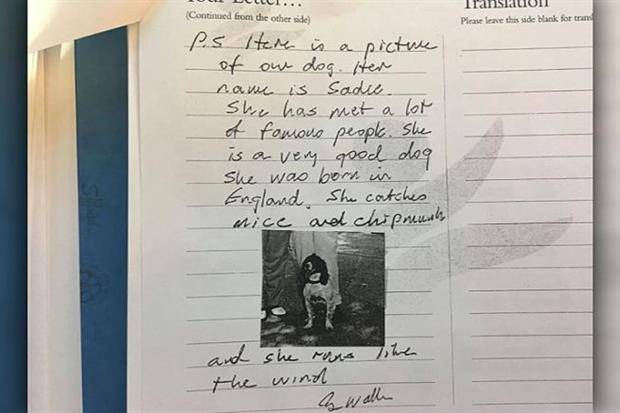 Your Letter...
(Continued from the other side)
P.S Here is a picture
of our dog. Her
name is Sadie.
She has met a lot
of famous people. She
is a very good dog
She was born in
England. She catches
mice and chipmunks
and she runs like
the wind
G Walker
Translation
Please leave this side blank for transl